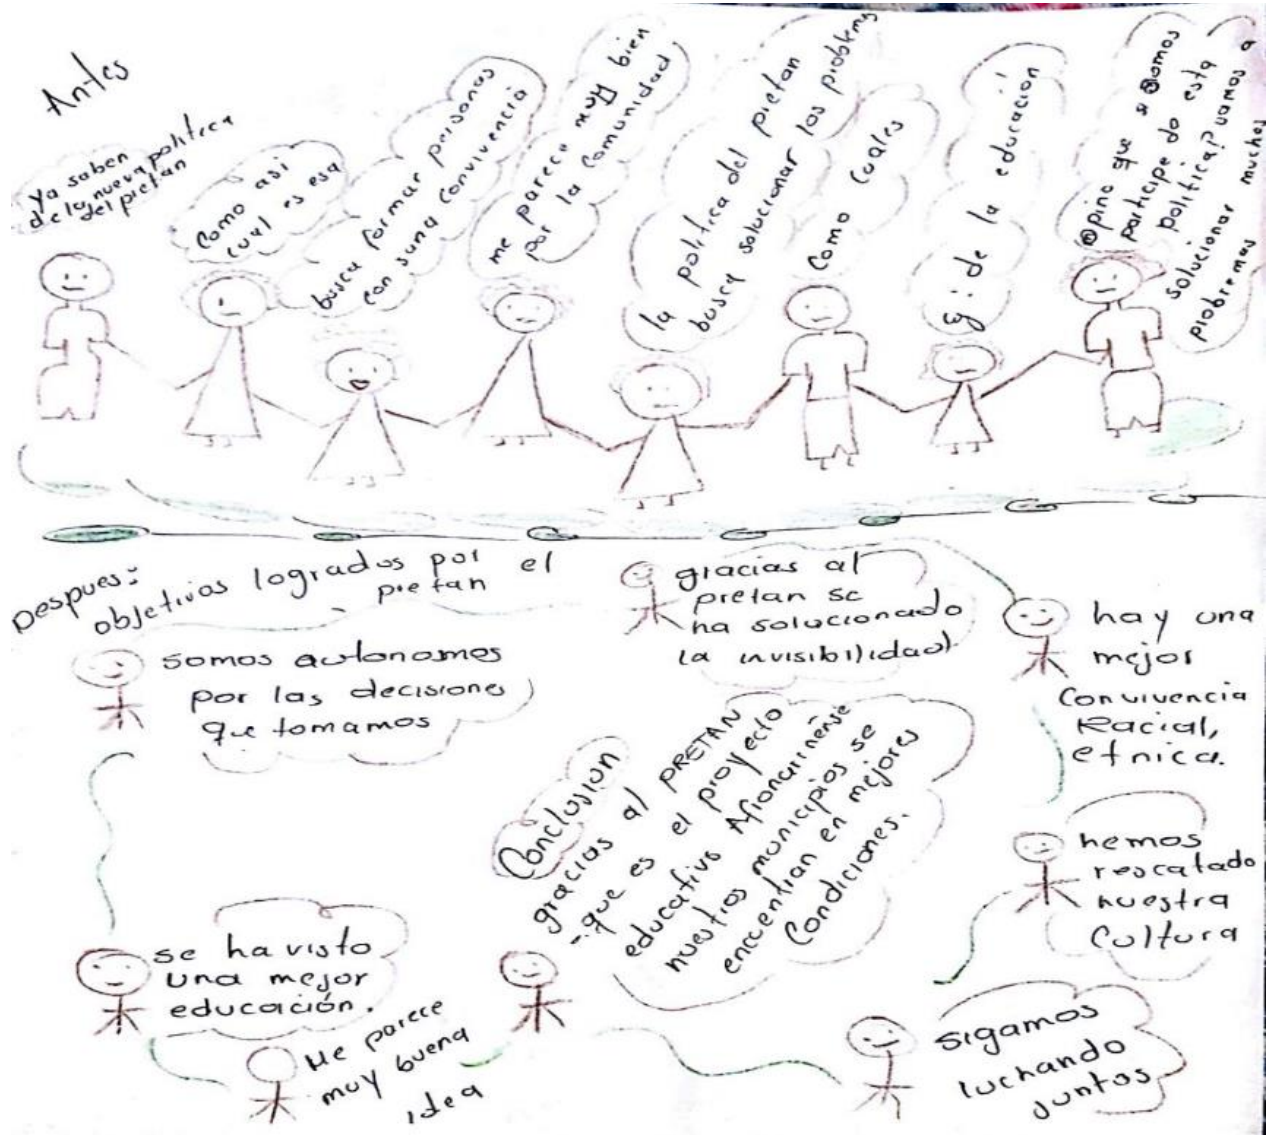 Antes
Ya saben
de la nueva politica
del pretan
Como asi
cual es esa
busca formar personas
con sana convivencia
me parece muy bien
por la comunidad
la politica del pretan
busca solucionar los problems
Como cuales
Ej: de la educación
Opino que si somos
participe de esta
politica? vamos a
solucionar muchos
probremas
Despues:
objetivos logrados por el
pretan
gracias al
pretan se
ha solucionado
la invisibilidad
hay una
mejor
Convivencia
Racial,
etnica.
somos autonomos
por las decisiones
que tomamos
Conclusion
gracias al PRETAN
que es el proyecto
educativo Afronariñense
nuestros municipios se
encuentran en mejores
Condiciones.
hemos
rescatado
nuestra
Cultura
se ha visto
una mejor
educación.
Me parece
muy buena
idea
sigamos
luchando
juntos